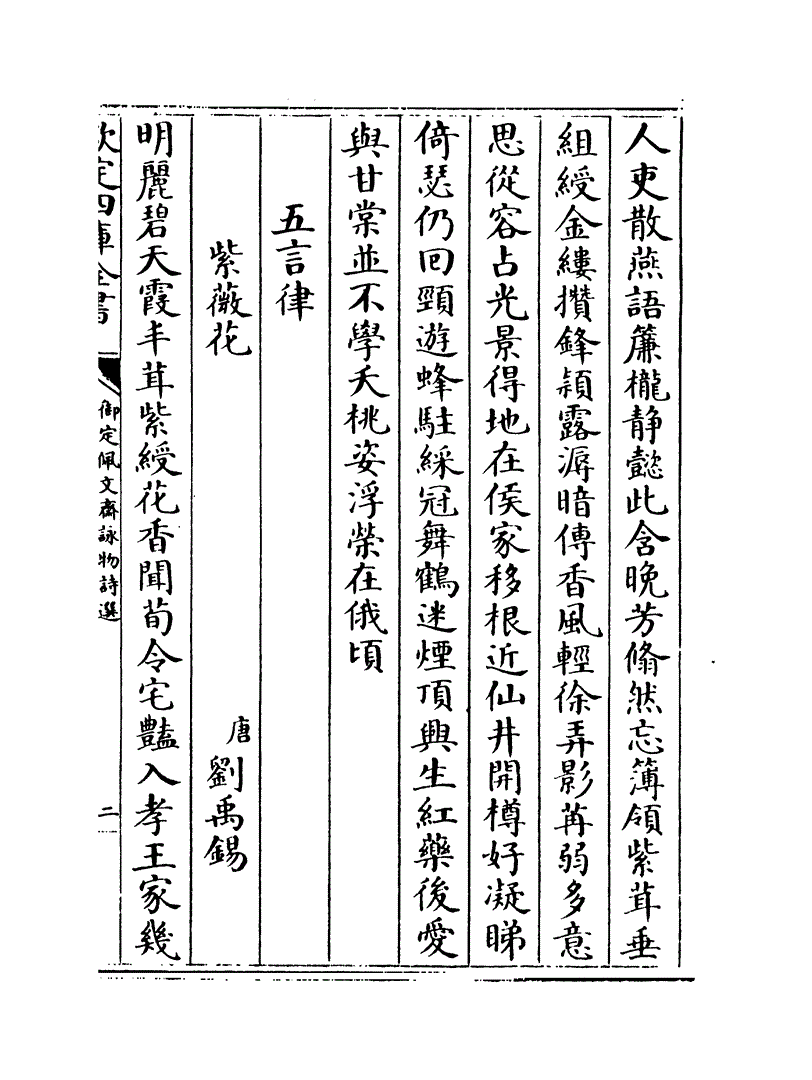 人吏散燕語簾櫳静懿此含晚芳翛然忘簿領紫茸垂
組綬金縷攢鋒頴露溽暗傳香風輕徐弄影苒弱多意
思從容占光景得地在侯家移根近仙井開樽好凝睇
倚瑟仍回頸遊蜂駐綵冠舞鶴迷煙頂興生紅藥後愛
與甘棠並不學夭桃姿浮榮在俄頃
五言律
紫薇花
唐劉禹錫
明麗碧天霞丰茸紫綬花香聞荀令宅豔入孝王家幾
欽定四庫全書
御定佩文齋詠物詩選
二